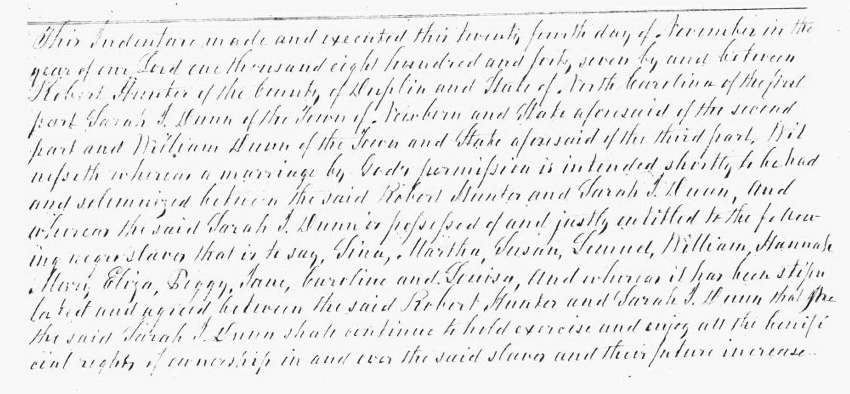 This Indenture made and executed this twenty fourth day of November in the
year of our Lord one thousand eight hundred and forty seven by and between
Robert Hunter of the County of Duplin and State of North Carolina of the first
part Sarah J. Dunn of the Town of Newbern and State aforesaid of the second
part and William Dunn of the Town and State aforesaid of the third part, Wit
nesseth whereas a marriage by God's permission is intended shortly to be had
and solemnized between the said Robert Hunter and Sarah J. Dunn, And
whereas the said Sarah J. Dunn is possessed of and justly entitled to the follow-
ing negro slaves that is to say, Sina, Martha, Susan, Lemuel, William, Hannah
Mary, Eliza, Peggy, Jane, Caroline and Louisa, And whereas it has been stipu
lated and agreed between the said Robert Hunter and Sarah J. Dunn that she
the said Sarah J. Dunn shall continue to hold exercise and enjoy all the benifi
cial rights of ownership in and over the said slaves and their future increase